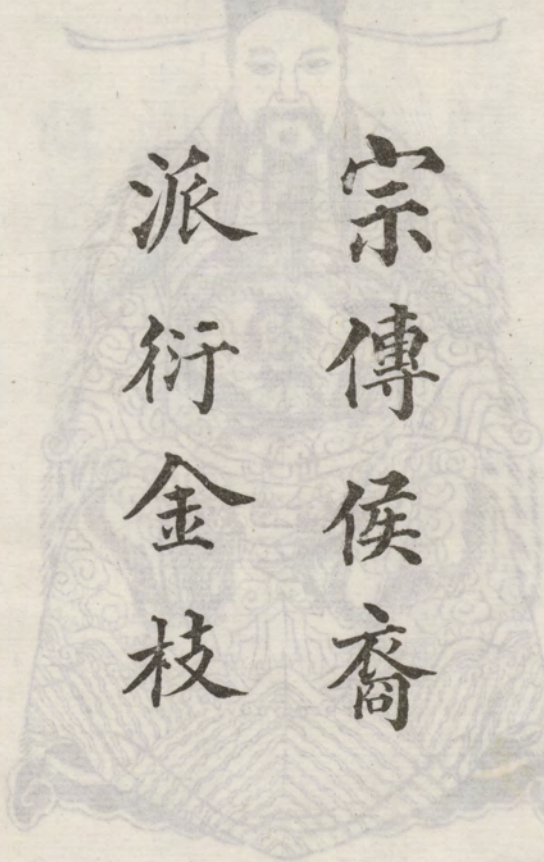 宗傳侯裔
派衍金枝